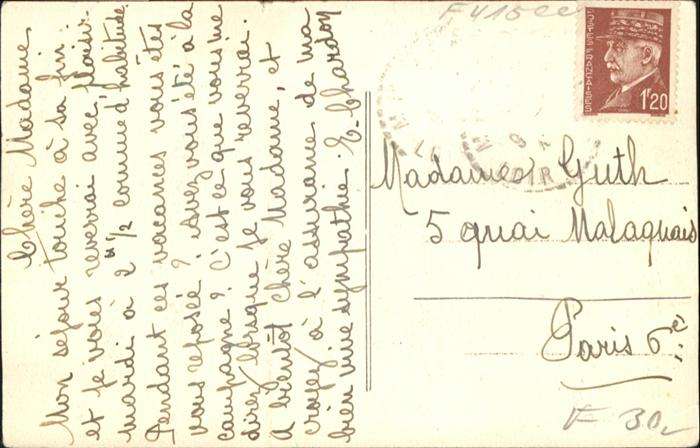 Chère Madame
Mon séjour touche à sa fin :
et je vous reverrai avec plaisir
mardi à 2h 1/2 comme d'habitude
Pendant ces vacances vous êtes
vous reposée ? avez vous été à la
campagne ? C'est ce que vous me
direz lorsque je vous reverrai.
A bientôt Chère Madame, et
croyez à l'assurance de ma
bien vive sympathie. E. Chardon
F415cc
POSTES FRANÇAISES
1F20
Madame Guth
5 quai Malaquais
Paris 6e
F 30